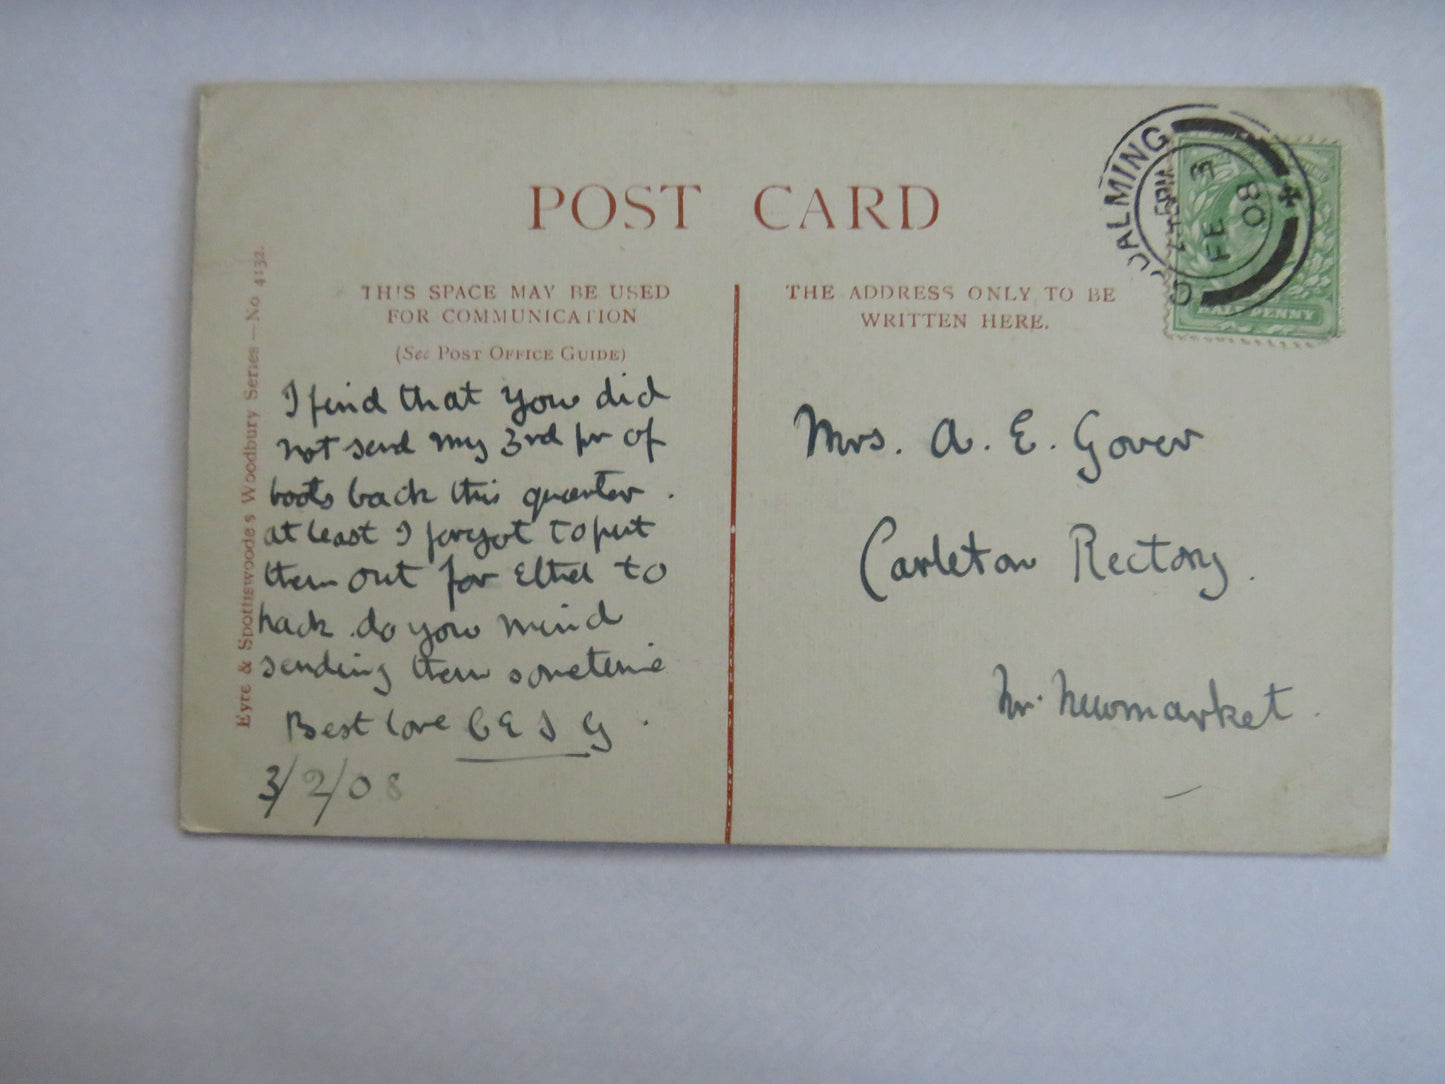 POST CARD
THIS SPACE MAY BE USED
FOR COMMUNICATION
(See POST OFFICE GUIDE)
I find that you did
not send my 3rd pr of
boots back this quarter.
at least I forgot to put
them out for Ethel to
pack. do you mind
sending them sometime
Best love C E S G.
3/2/08
Eyre & Spottiswoode's Woodbury Series—No 4132.
THE ADDRESS ONLY TO BE
WRITTEN HERE.
Mrs. A. E. Gover
Carleton Rectory.
Nr. Newmarket.
GODALMING
FE 3
08
HALFPENNY